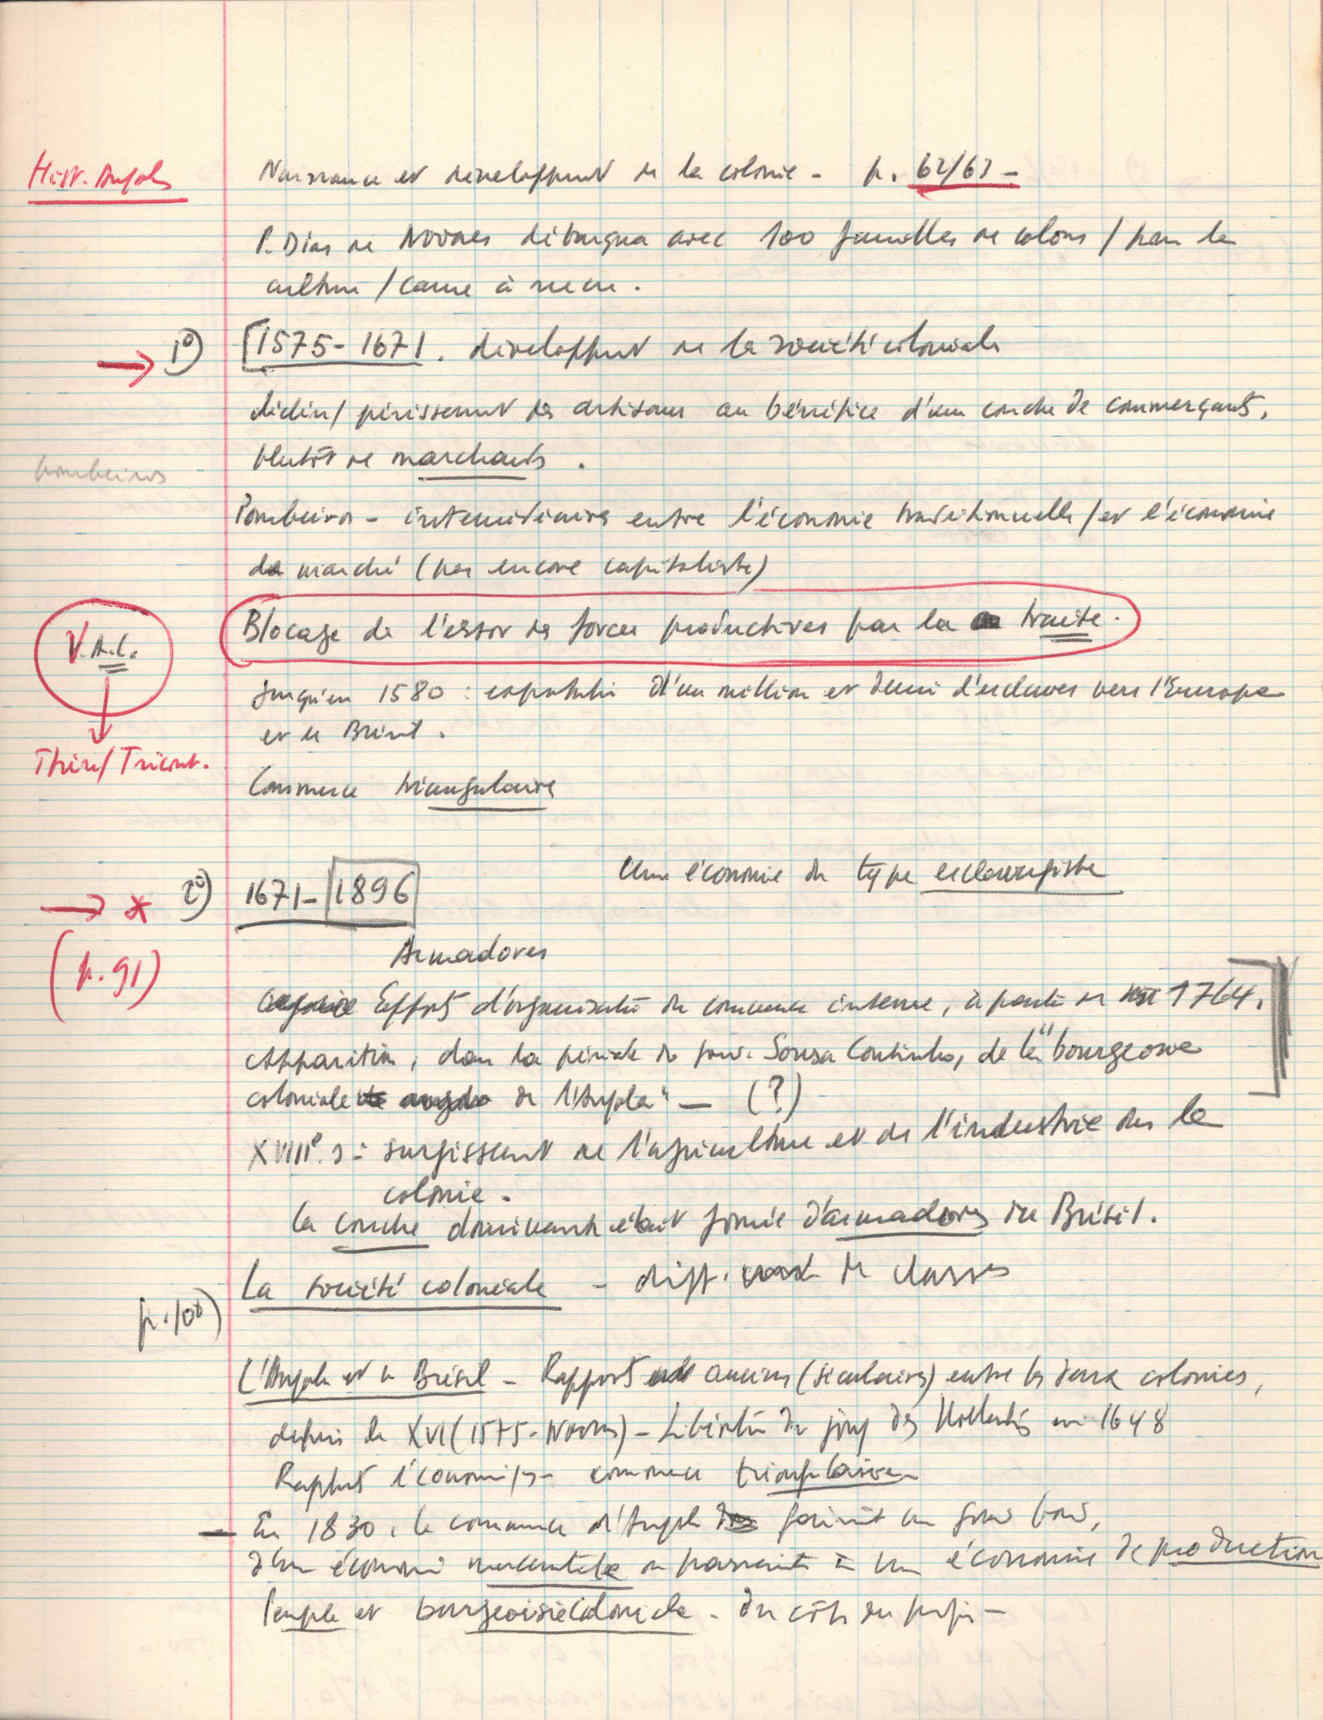 Hist. Angola
Naissance et developpement de la colonie - p. 62/63 -
P. Dias de Novaes débarqua avec 100 familles de colons / pour la
culture / canne à sucre.
→ 1º) [1575-1671. développement de la société coloniale
déclin / périssement des artisans au bénéfice d'une couche de commerçants,
plutôt de marchands.
pombeiros
Pombeiros - intermédiaires entre l'économie traditionnelle / et l'économie
de marché (pas encore capitaliste)
Blocage de l'essor des forces productives par la traite.
V.A.C.
Jusqu'en 1580 : exportation d'un million et demi d'esclaves vers l'Europe
et le Brésil.
Thin/Tricont.
Commerce triangulaire
Une économie de type esclavagiste
→ * 2º) 1671-1896
(p. 91)
Armadores
Efforts d'organisation du commerce interne, à partir de 1764.
Apparition, dans la période du gouv. Sousa Coutinho, de la "bourgeoisie
coloniale de l'Angola" - (?)
XVIIIº. s - surgissent de l'agriculture et de l'industrie dans la
colonie.
La couche dominante était formée d'armadores du Brésil.
La société coloniale - diff. de classes
p. 100)
L'Angola et le Brésil - Rapports anciens (séculaires) entre les deux colonies,
depuis le XVI (1575 - Novaes) - Libération du joug des Hollandais en 1648
Rapports économiq. - commerce triangulaire
- En 1830, le commerce d'Angola
d'une économie mercantile on passerait à une économie de production
Peuple et bourgeoisie coloniale - du côté du